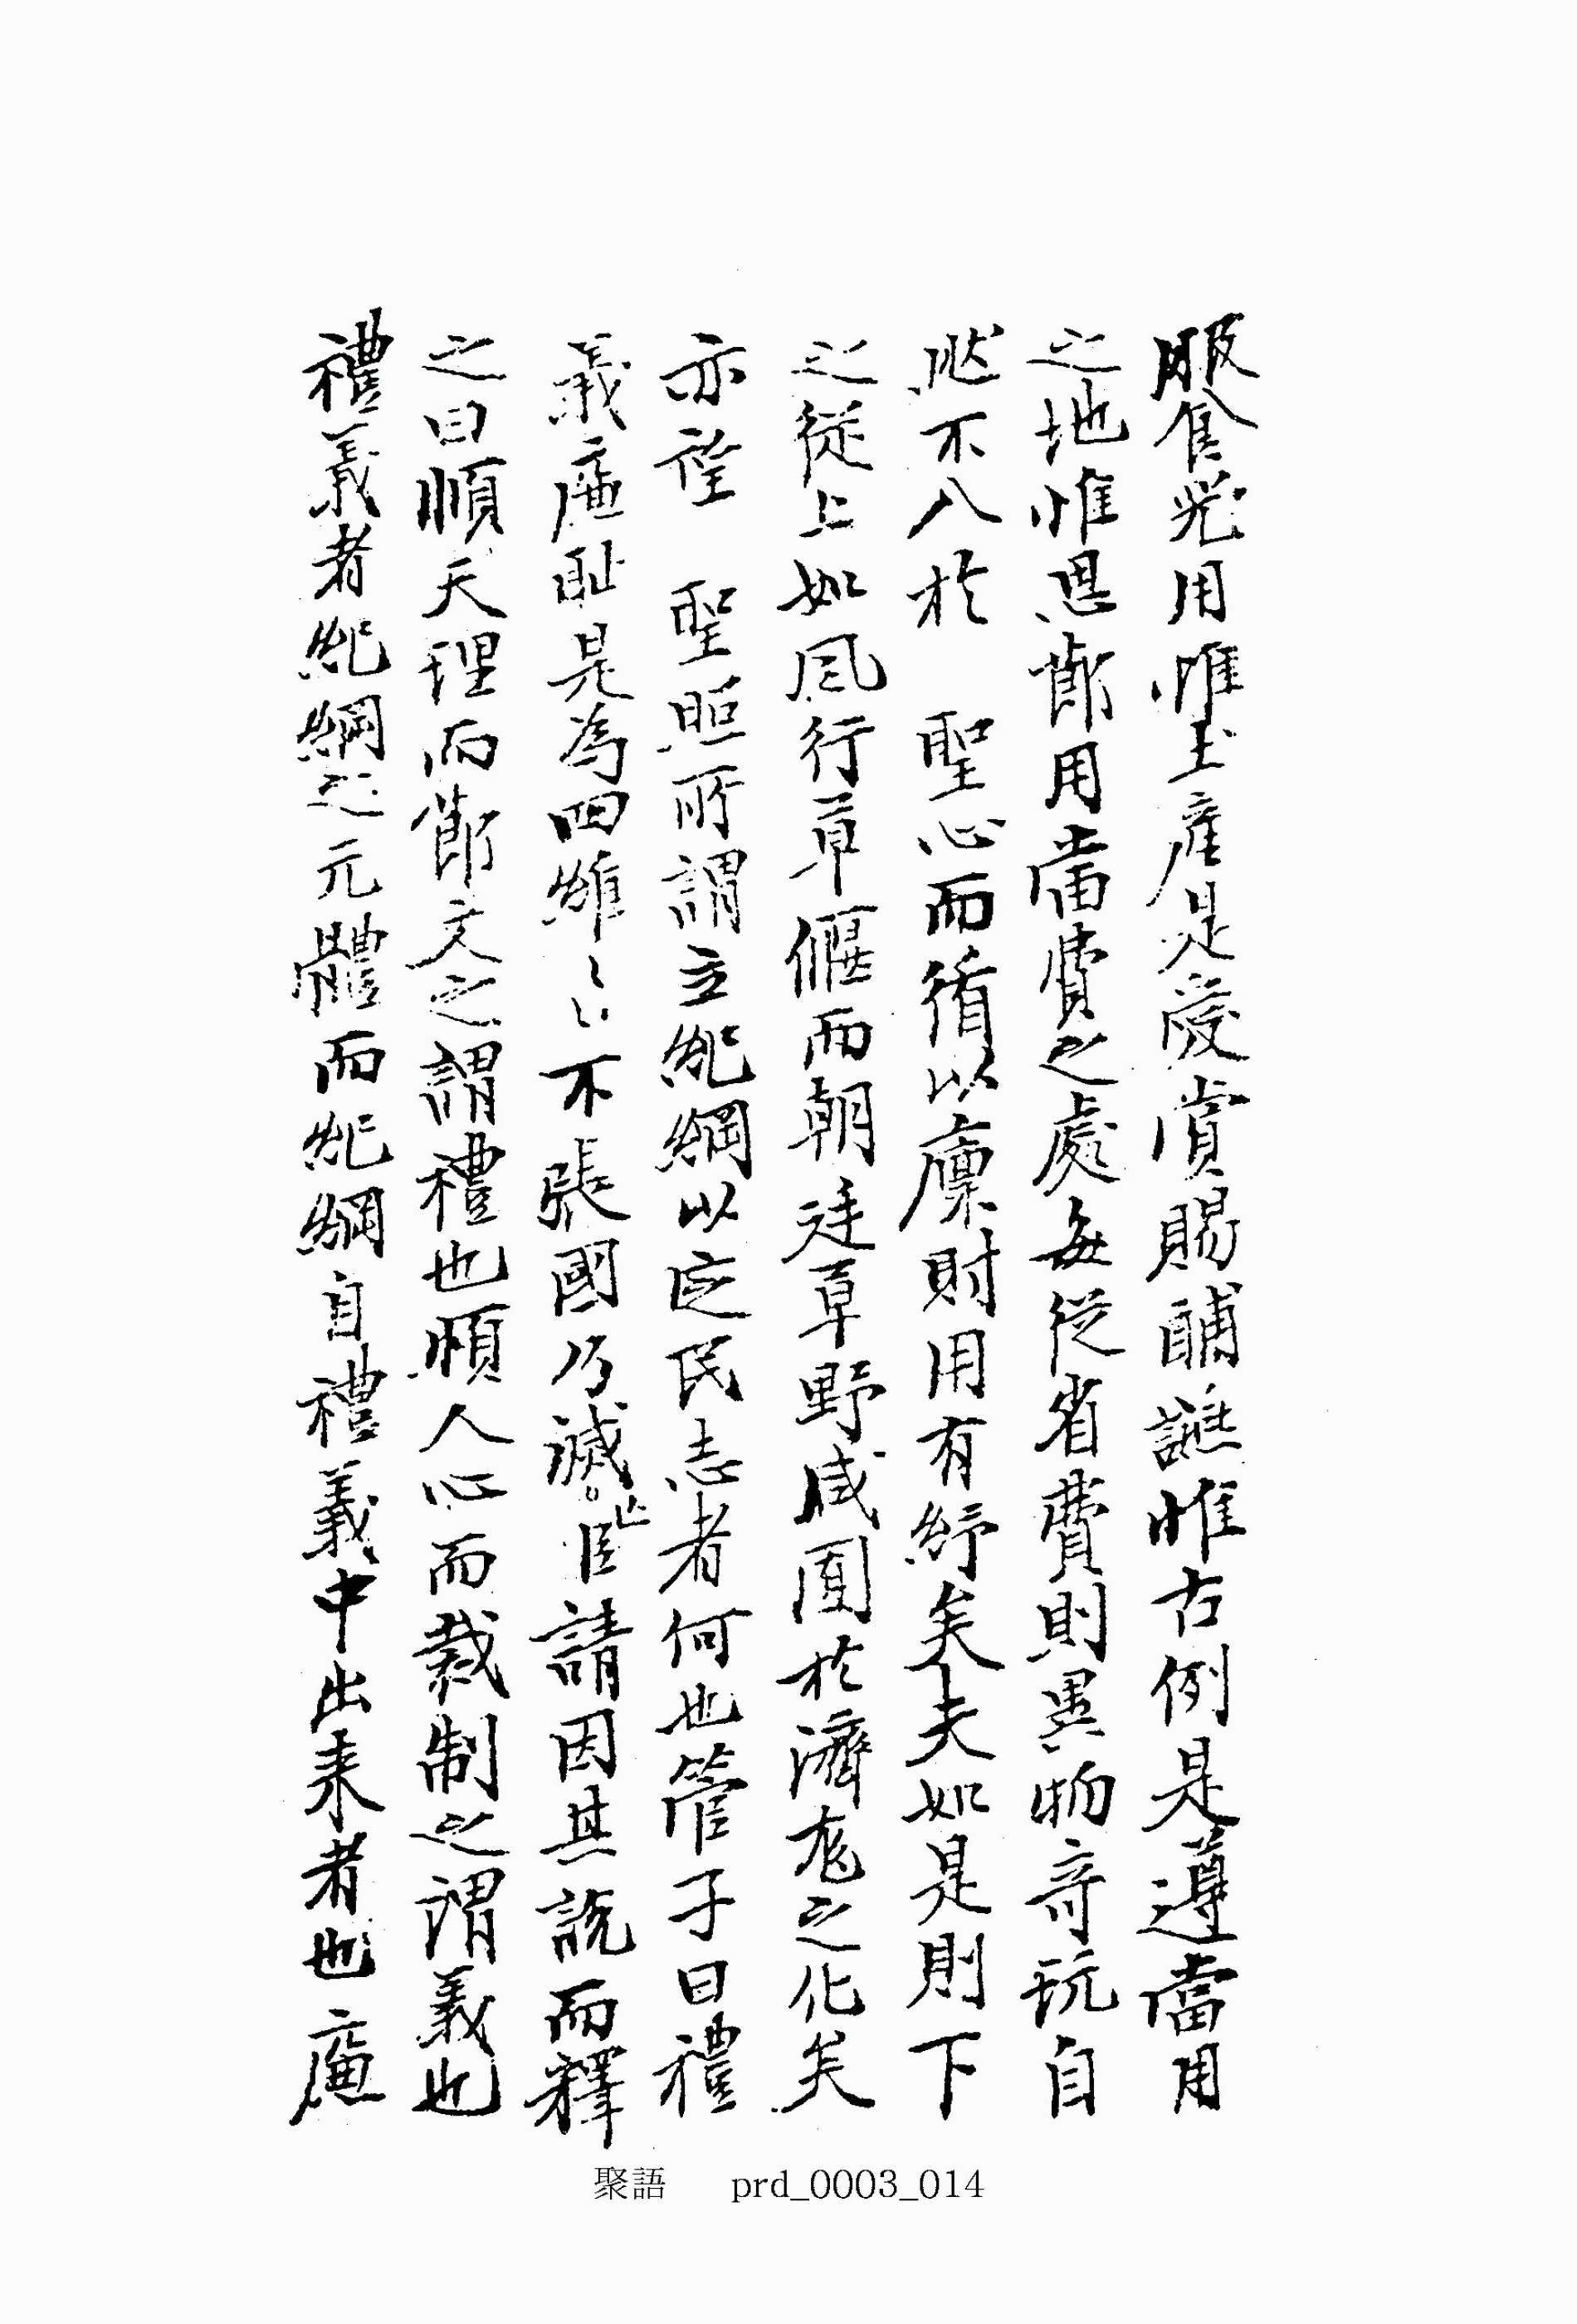 服食器用惟土産是愛賞賜酺讌惟古例是遵當用
之地惟思節用當費之處每從省費則異物奇玩自
然不入於 聖心而循以廩財用有紓矣夫如是則下
之從上如風行草偃而朝廷草野咸囿於濟冘之化矣
亦望 聖照所謂立紀綱以定民志者何也管子曰禮
義廉恥是爲四維〻〻不張國乃滅亡臣請因其說而釋
之曰順天理而節文之謂禮也順人心而裁制之謂義也
禮義者紀綱之元體而紀綱自禮義中出来者也廉
聚語 prd_0003_014